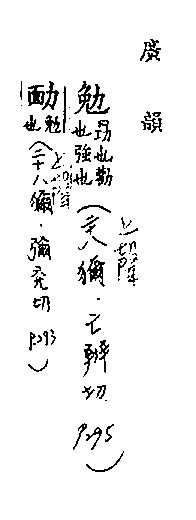 廣韻
勉 勗也勸也強也(二十八獮.亡辨切 P295)
勔 勉也(二十八獮.彌兗切 P293)